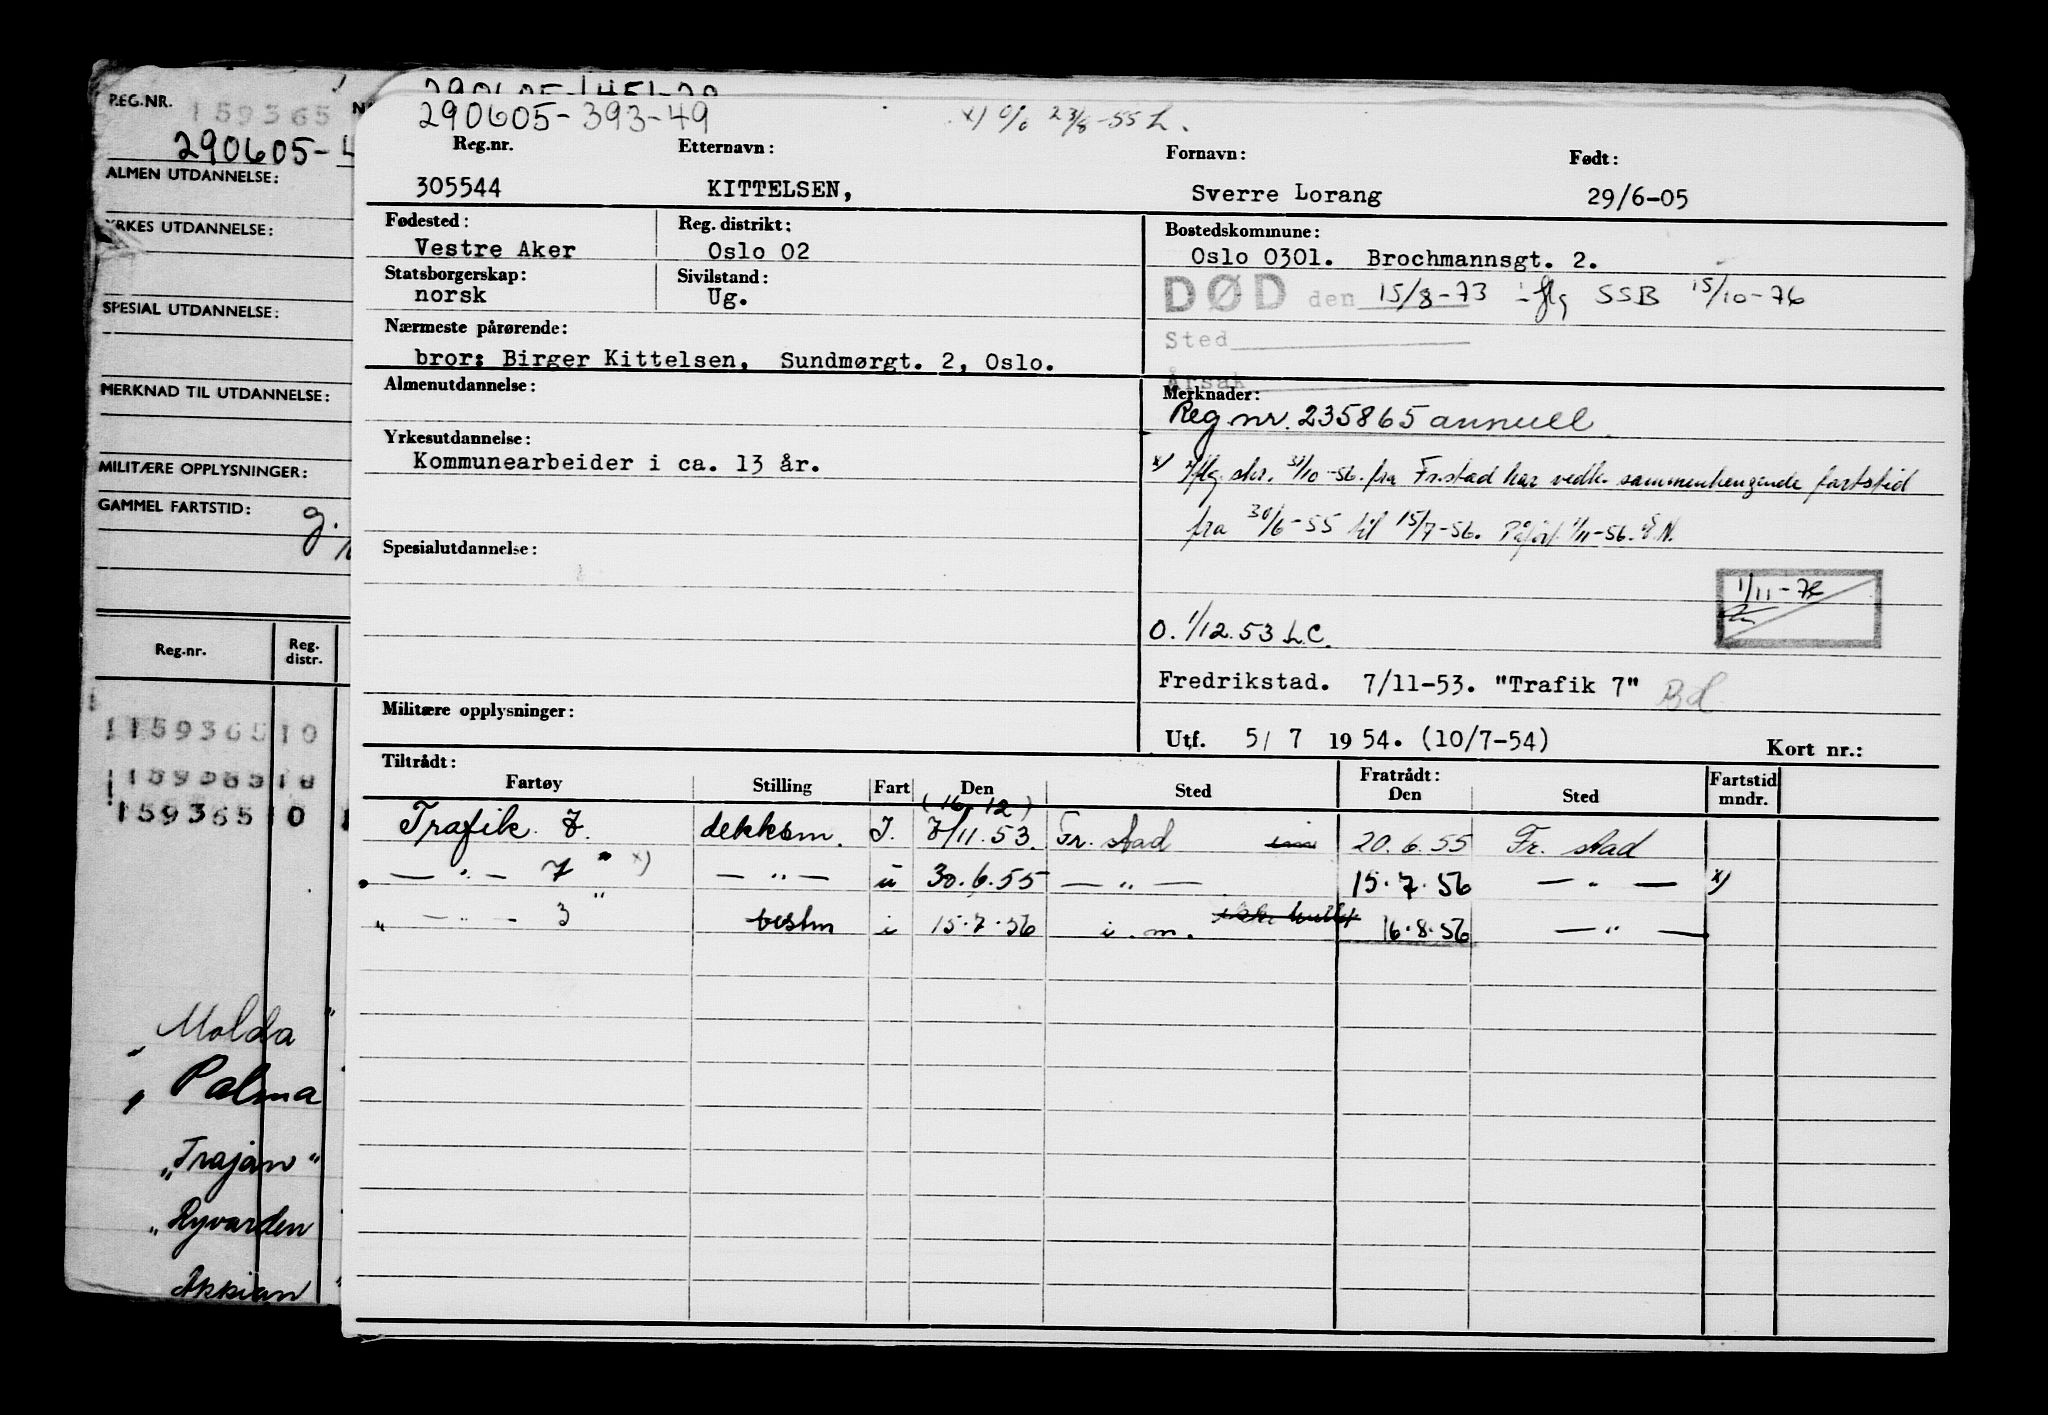 REG.NR.
159365
290605-4
ALMEN UTDANNELSE:
YRKES UTDANNELSE:
SPESIAL UTDANNELSE:
MERKNAD TIL UTDANNELSE:
MILITÆRE OPPLYSNINGER:
GAMMEL FARTSTID:
g.
Reg.nr. Reg. distr.
115936510
15936510
15936510
Molda"
"Palma
"Trajan"
"Ryvarden
Akkian
290605-393-49
x) % 23/8-55 L.
Reg.nr. Etternavn: Fornavn: Født:
305544 KITTELSEN, Sverre Lorang 29/6-05
Fødested: Reg. distrikt: Bostedskommune:
Vestre Aker Oslo 02 Oslo 0301. Brochmannsgt. 2.
Statsborgerskap: Sivilstand: DØD den 15/8-73 iflg SSB 15/10-76
norsk Ug.
Sted
Nærmeste pårørende:
bror: Birger Kittelsen, Sundmørgt. 2, Oslo.
Årsak
Almenutdannelse: Merknader:
Reg nr. 235865 annull.
Yrkesutdannelse:
Kommunearbeider i ca. 13 år.
x) Iflg. skr. 31/10-56. fra Fr.stad har vedk. sammenhengende fartstid
fra 30/6-55 til 15/7-56. Påført 1/11-56. E.N.
Spesialutdannelse:
1/11-72
O. 1/12.53 L.C.
Fredrikstad. 7/11-53. "Trafik 7"
Militære opplysninger:
Utf. 5/ 7 1954. (10/7-54) Kort nr.:
Tiltrådt: Fratrådt:
Fartøy Stilling Fart Den Sted Den Sted Fartstid mndr.
(16.12)
Trafik 7. dekksm. I. 7/11.53. Fr. stad im 20.6.55 Fr. stad
— " — 7" x) — " — u 30.6.55 — " — 15.7.56 — " — x)
" — " — 3" bestm i 15.7.56 i.m. 16.8.56 — " —